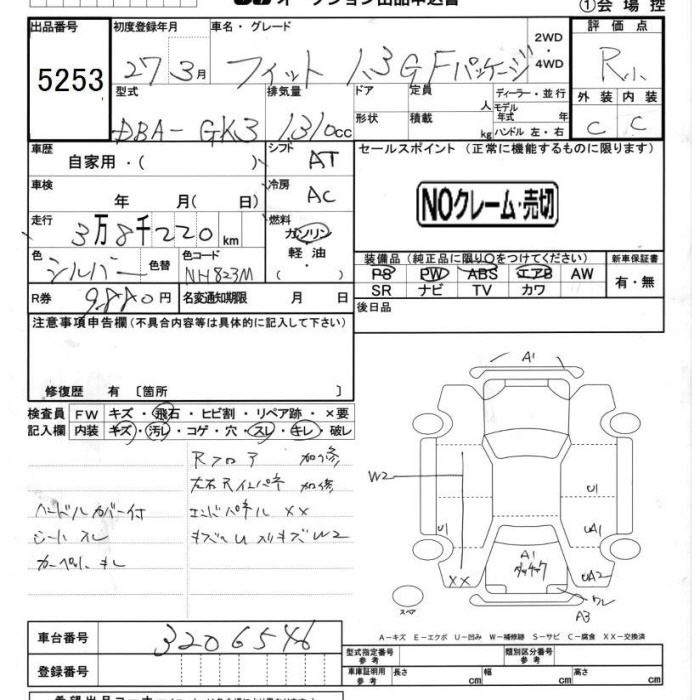 オークション出品申込書
①会場控
出品番号 初度登録年月 車名・グレード 評価点
5253 27年3月 フィット 1.3GFパッケージ 2WD・4WD R
型式 排気量 ドア 定員 人 ディーラー・並行 外装 内装
DBA-GK3 1310cc 形状 積載 kg モデル年式 年 ハンドル 左・右 C C
車歴 自家用・( ) シフト AT セールスポイント (正常に機能するものに限ります)
車検 年 月( 日) 冷房 AC
NOクレーム・売切
走行 3万8千220km 燃料 ガソリン 軽油 ( )
色 シルバー 色替 色コード NH823M
装備品 (純正品に限り○をつけてください) 新車保証書
PS PW ABS エアB AW 有・無
SR ナビ TV カワ
R券 9880円 名変通知期限 月 日 後日品
注意事項申告欄 (不具合内容等は具体的に記入して下さい)
修復歴 有 〔箇所 〕
検査員 FW キズ・飛石・ヒビ割・リペア跡・×要
記入欄 内装 キズ・汚レ・コゲ・穴・スレ・キレ・破レ
Rフロア 加修
左右Rインパネ 加修
ハンドルカバー付 エンドパネル XX
シートスレ
カーペット キレ
A1
W2
U1 U1
UA1
A1
XX UA2
ワレ
A3
スペア
A-キズ E-エクボ U-凹み W-補修跡 S-サビ C-腐食 XX-交換済
車台番号 3206546
登録番号
型式指定番号 参考 類別区分番号 参考
車庫証明用 参考 長さ cm 幅 cm 高さ cm